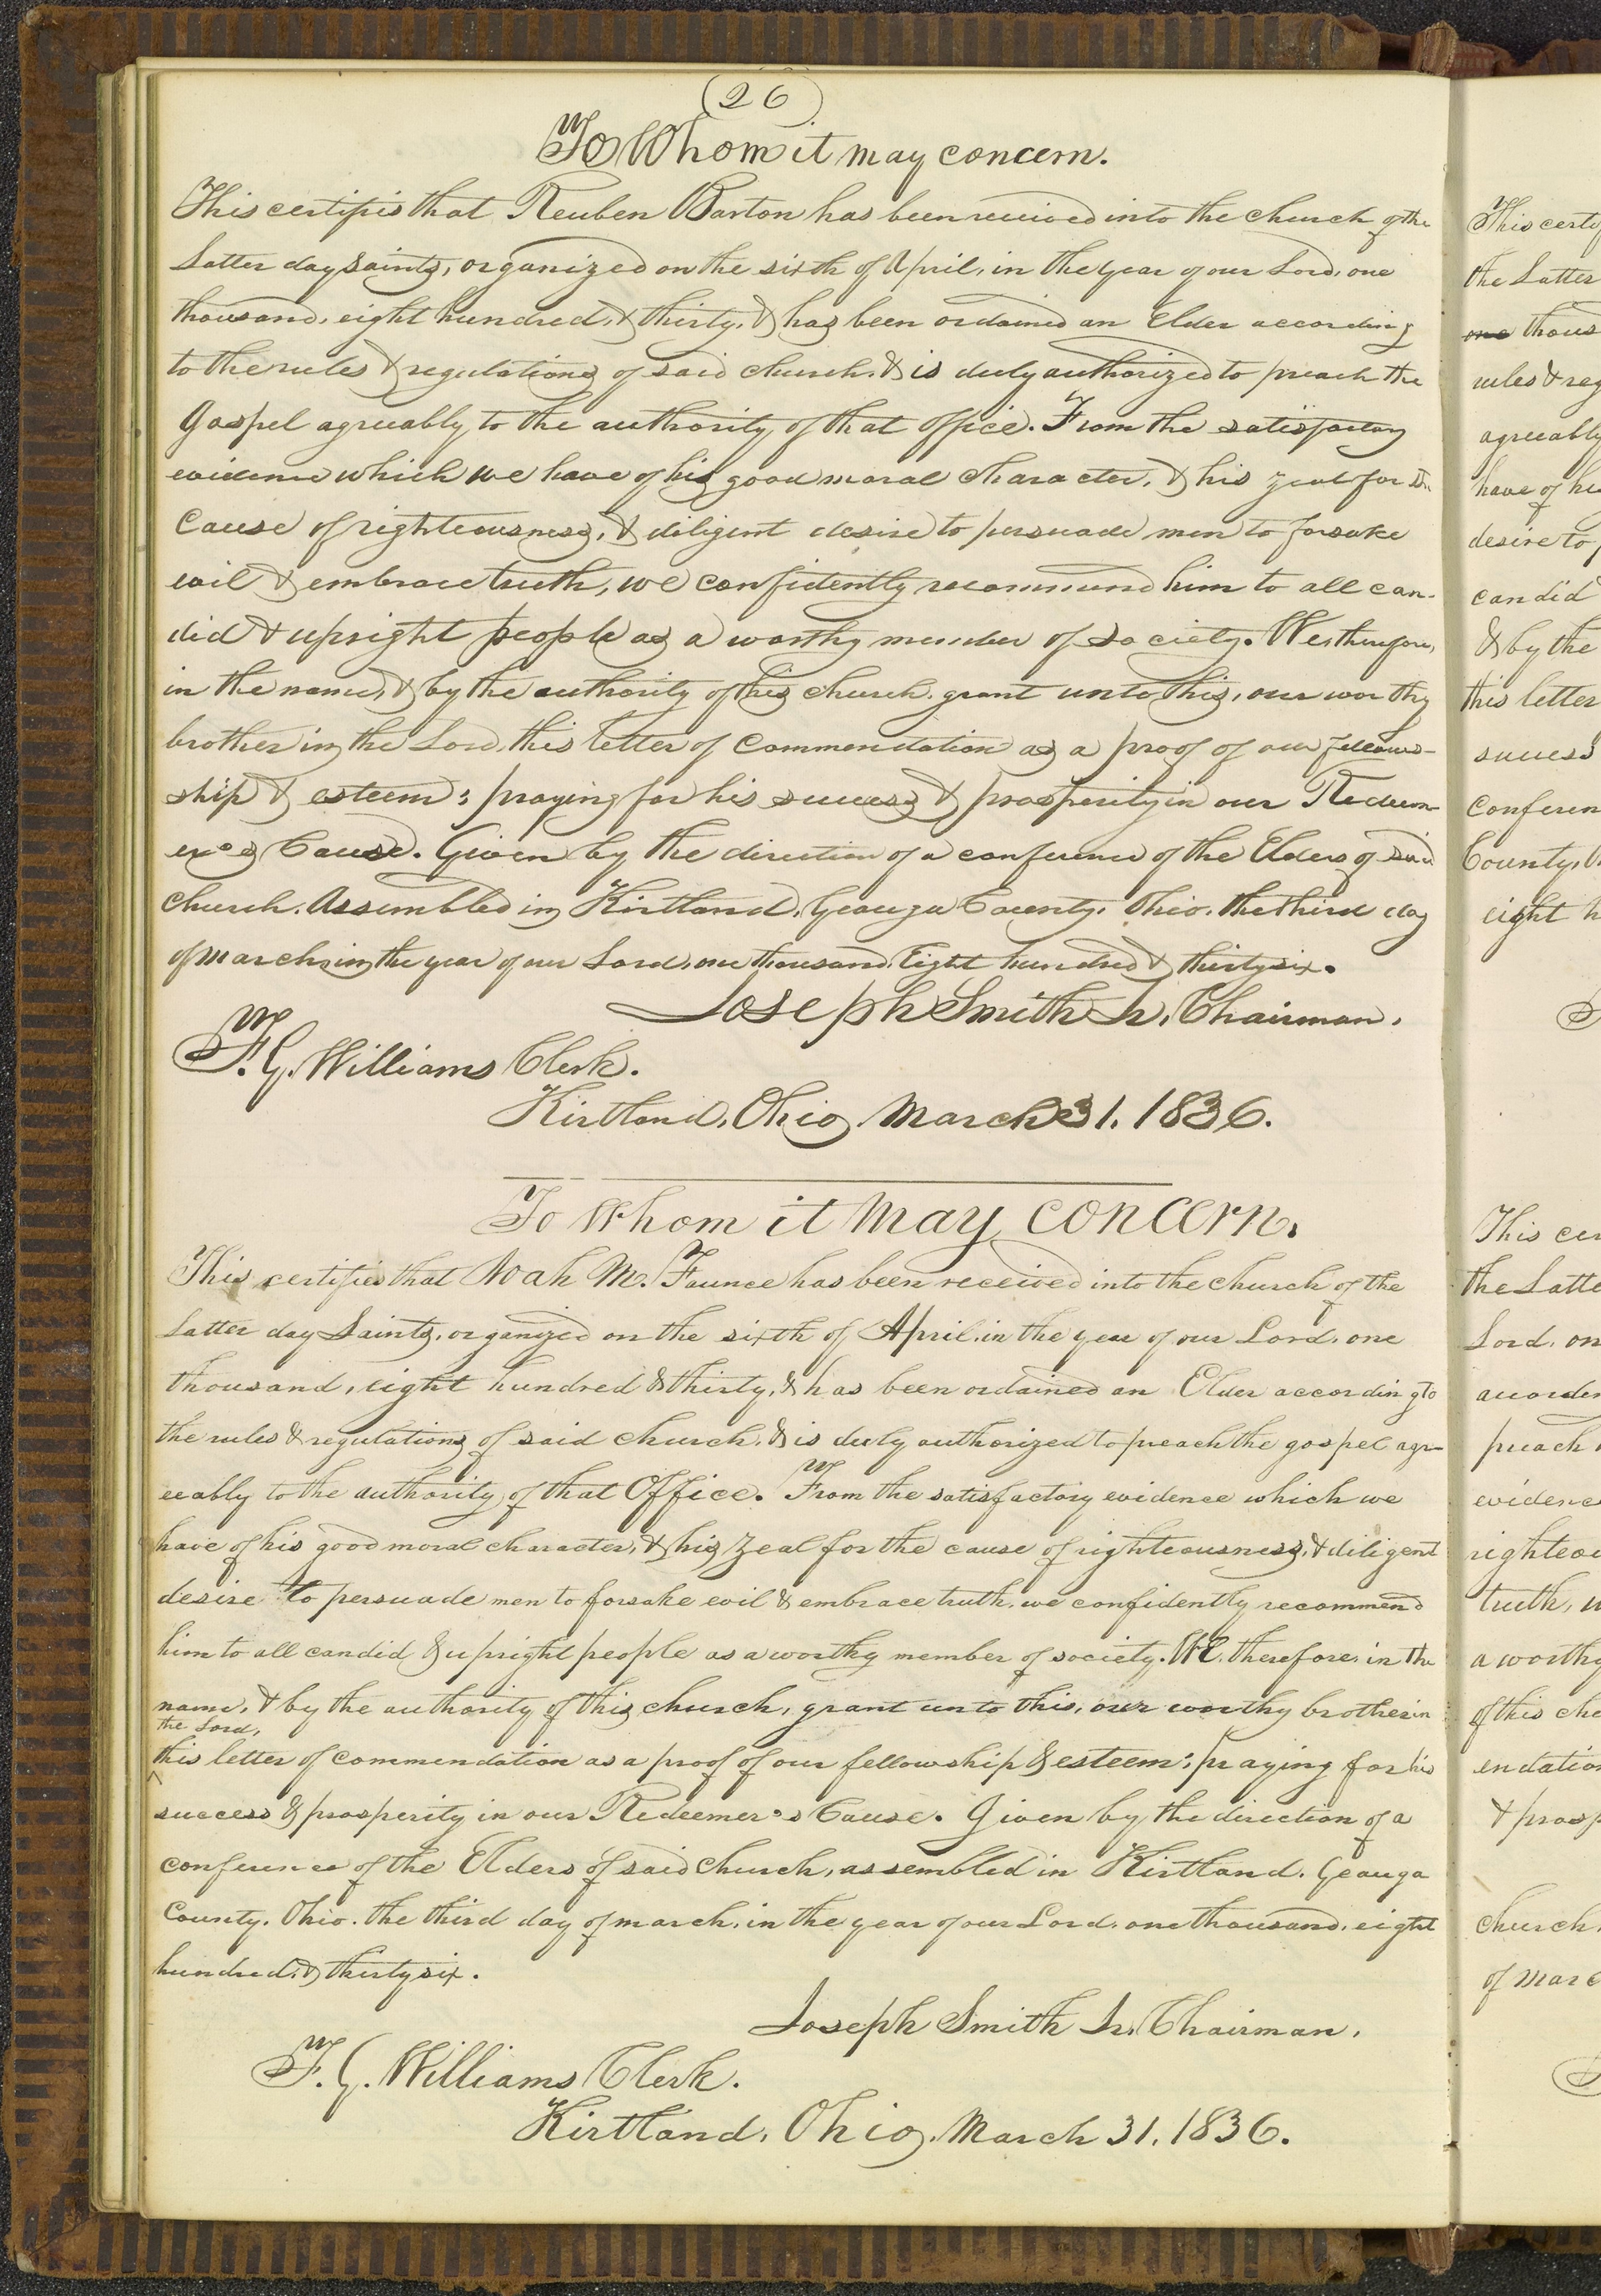 26
To Whom it may concern.
This certifies that Reuben Barton has been received into the church of the
Latter day Saints, organized on the sixth of April, in the year of our Lord, one
thousand, eight hundred, & thirty, & has been ordained an Elder according
to the rules & regulations of said church, & is duly authorized to preach the
Gospel agreeably to the authority of that office. From the satisfactory
evidence which we have of his good moral character, & his zeal for the
Cause of righteousness, & diligent desire to persuade men to forsake
evil & embrace truth, we confidently recommend him to all can-
did & upright people as a worthy member of society. We, therefore,
in the name, & by the authority of this church, grant unto this, our worthy
brother in the Lord, this letter of Commendation as a proof of our fellow-
ship & esteem: praying for his success & prosperity in our Redeem-
er's Cause. Given by the direction of a conference of the Elders of said
church. Assembled in Kirtland, Geauga County, Ohio, the third day
of march, in the year of our Lord, one thousand, Eight hundred & thirty six.
Joseph Smith Jr. Chairman.
F. G. Williams Clerk.
Kirtland, Ohio, March 31, 1836.
To Whom it May concern.
This certifies that Noah M. Faunce has been received into the church of the
Latter day Saints, organized on the sixth of April, in the year of our Lord, one
thousand, eight hundred & thirty, & has been ordained an Elder according to
the rules & regulations of said church, & is duly authorized to preach the gospel agre-
eably to the authority of that Office. From the satisfactory evidence which we
have of his good moral character, & his zeal for the cause of righteousness, & diligent
desire to persuade men to forsake evil & embrace truth, we confidently recommend
him to all candid & upright people as a worthy member of society. We, therefore, in the
name, & by the authority of this church, grant unto this, our worthy brother in
the Lord,
this letter of commendation as a proof of our fellowship & esteem: praying for his
success & prosperity in our Redeemer's Cause. Given by the direction of a
conference of the Elders of said church, assembled in Kirtland, Geauga
County, Ohio, the third day of march, in the year of our Lord, one thousand, eight
hundred, & thirty six.
Joseph Smith Jr. Chairman.
F. G. Williams Clerk.
Kirtland, Ohio, March 31, 1836.
This certif
the Latter
one thous
rules & reg
agreeably
have of hi
desire to p
candid
& by the
this letter
success
conferen
County, O
eight h
This cer
the Latte
Lord, on
accordin
preach
evidence
righteou
truth, w
a worthy
of this chu
endation
& prosp
church,
of marc